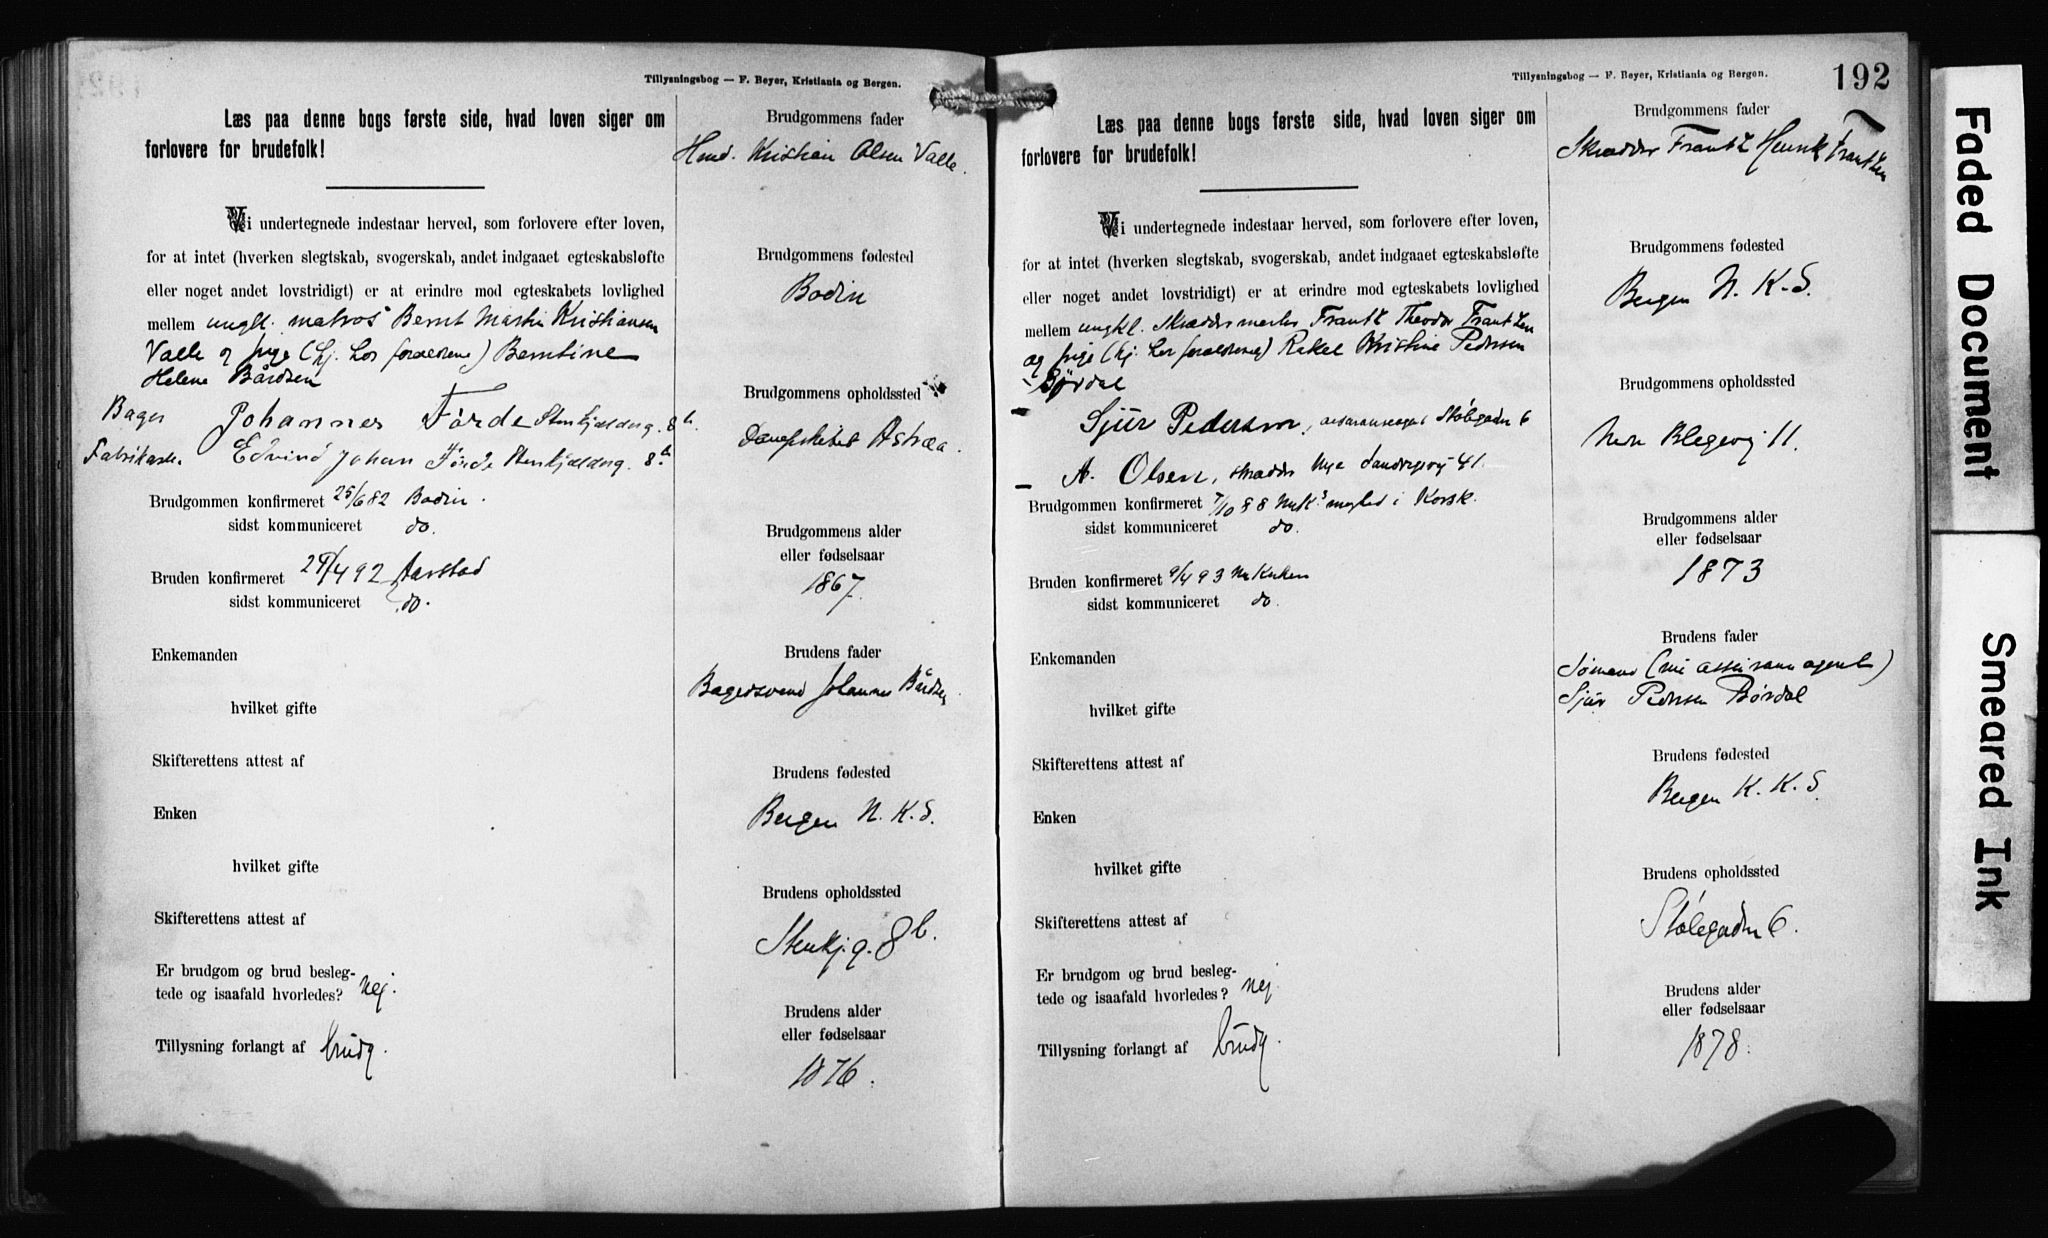 Tillysningsbog — F. Beyer, Kristiania og Bergen.
Læs paa denne bogs første side, hvad loven siger om
forlovere for brudefolk!
Vi undertegnede indestaar herved, som forlovere efter loven,
for at intet (hverken slegtskab, svogerskab, andet indgaaet egteskabsløfte
eller noget andet lovstridigt) er at erindre mod egteskabets lovlighed
mellem ungk. matros Bernt Martin Kristiansen
Valle og pige (hj. hos forældrene) Berntine
Helene Bårdsen
Bager Johannes Førde Stenkjælderg. 8b.
Fabrikarb. Edvind Johan Førde Stenkjælderg. 8b
Brudgommen konfirmeret 25/6 82 Bodin.
sidst kommuniceret do.
Bruden konfirmeret 24/4 92 Aarstad
sidst kommuniceret do.
Enkemanden
hvilket gifte
Skifterettens attest af
Enken
hvilket gifte
Skifterettens attest af
Er brudgom og brud besleg-
tede og isaafald hvorledes? nej.
Tillysning forlangt af brudg.
Brudgommens fader
Hmd. Kristian Olsen Valle.
Brudgommens fødested
Bodin
Brudgommens opholdssted
Dampskibet Astræa.
Brudgommens alder
eller fødselsaar
1867.
Brudens fader
Bagersvend Johannes Bårdsen
Brudens fødested
Bergen N. K. S.
Brudens opholdssted
Stenkj.g. 8b.
Brudens alder
eller fødselsaar
1876.
Tillysningsbog — F. Beyer, Kristiania og Bergen.
192
Læs paa denne bogs første side, hvad loven siger om
forlovere for brudefolk!
Vi undertegnede indestaar herved, som forlovere efter loven,
for at intet (hverken slegtskab, svogerskab, andet indgaaet egteskabsløfte
eller noget andet lovstridigt) er at erindre mod egteskabets lovlighed
mellem ungkl. Skræddermester Frantz Theodor Frantzen
og pige (hj. hos forældrene) Rakel Kristine Pedersen
Børdal
Sjur Pedersen, assuranseagent Stølegaden 6
A. Olsen, skrædder Nye Sandviksvei 41.
Brudgommen konfirmeret 7/10 88 i Korsk.
sidst kommuniceret do.
Bruden konfirmeret 9/4 93 Nykirken
sidst kommuniceret do.
Enkemanden
hvilket gifte
Skifterettens attest af
Enken
hvilket gifte
Skifterettens attest af
Er brudgom og brud besleg-
tede og isaafald hvorledes? nej.
Tillysning forlangt af brudg.
Brudgommens fader
Skrædder Frantz Henrik Frantzen
Brudgommens fødested
Bergen N. K. S.
Brudgommens opholdssted
Nedre Blegevej 11.
Brudgommens alder
eller fødselsaar
1873
Brudens fader
Sømand (nu assuranceagent)
Sjur Pedersen Børdal
Brudens fødested
Bergen K. K. S.
Brudens opholdssted
Stølegaden 6.
Brudens alder
eller fødselsaar
1878.
Faded Document
Smeared Ink